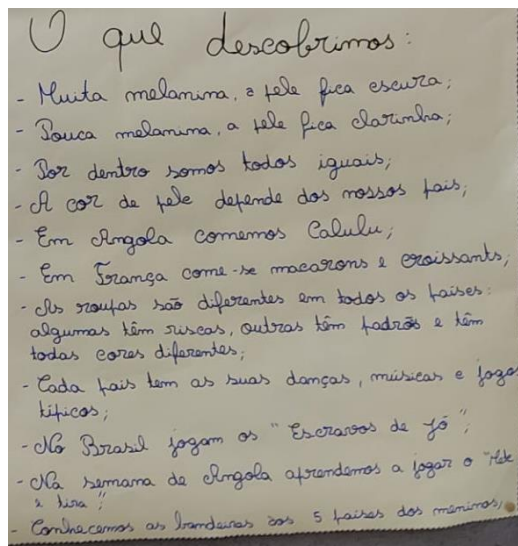 O que descobrimos:
- Muita melanina, a pele fica escura;
- Pouca melanina, a pele fica clarinha;
- Por dentro somos todos iguais;
- A cor de pele depende dos nossos pais;
- Em Angola comemos Calulu;
- Em França come-se macarons e croissants;
- As roupas são diferentes em todos os países:
algumas têm riscas, outras têm padrõs e têm
todas cores diferentes;
- Cada país tem as suas danças, músicas e jogos
típicos;
- No Brasil jogam os "Escravos de Jó";
- Na semana de Angola aprendemos a jogar o "Mete
e tira";
- Conhecemos as bandeiras dos 5 países dos meninos;